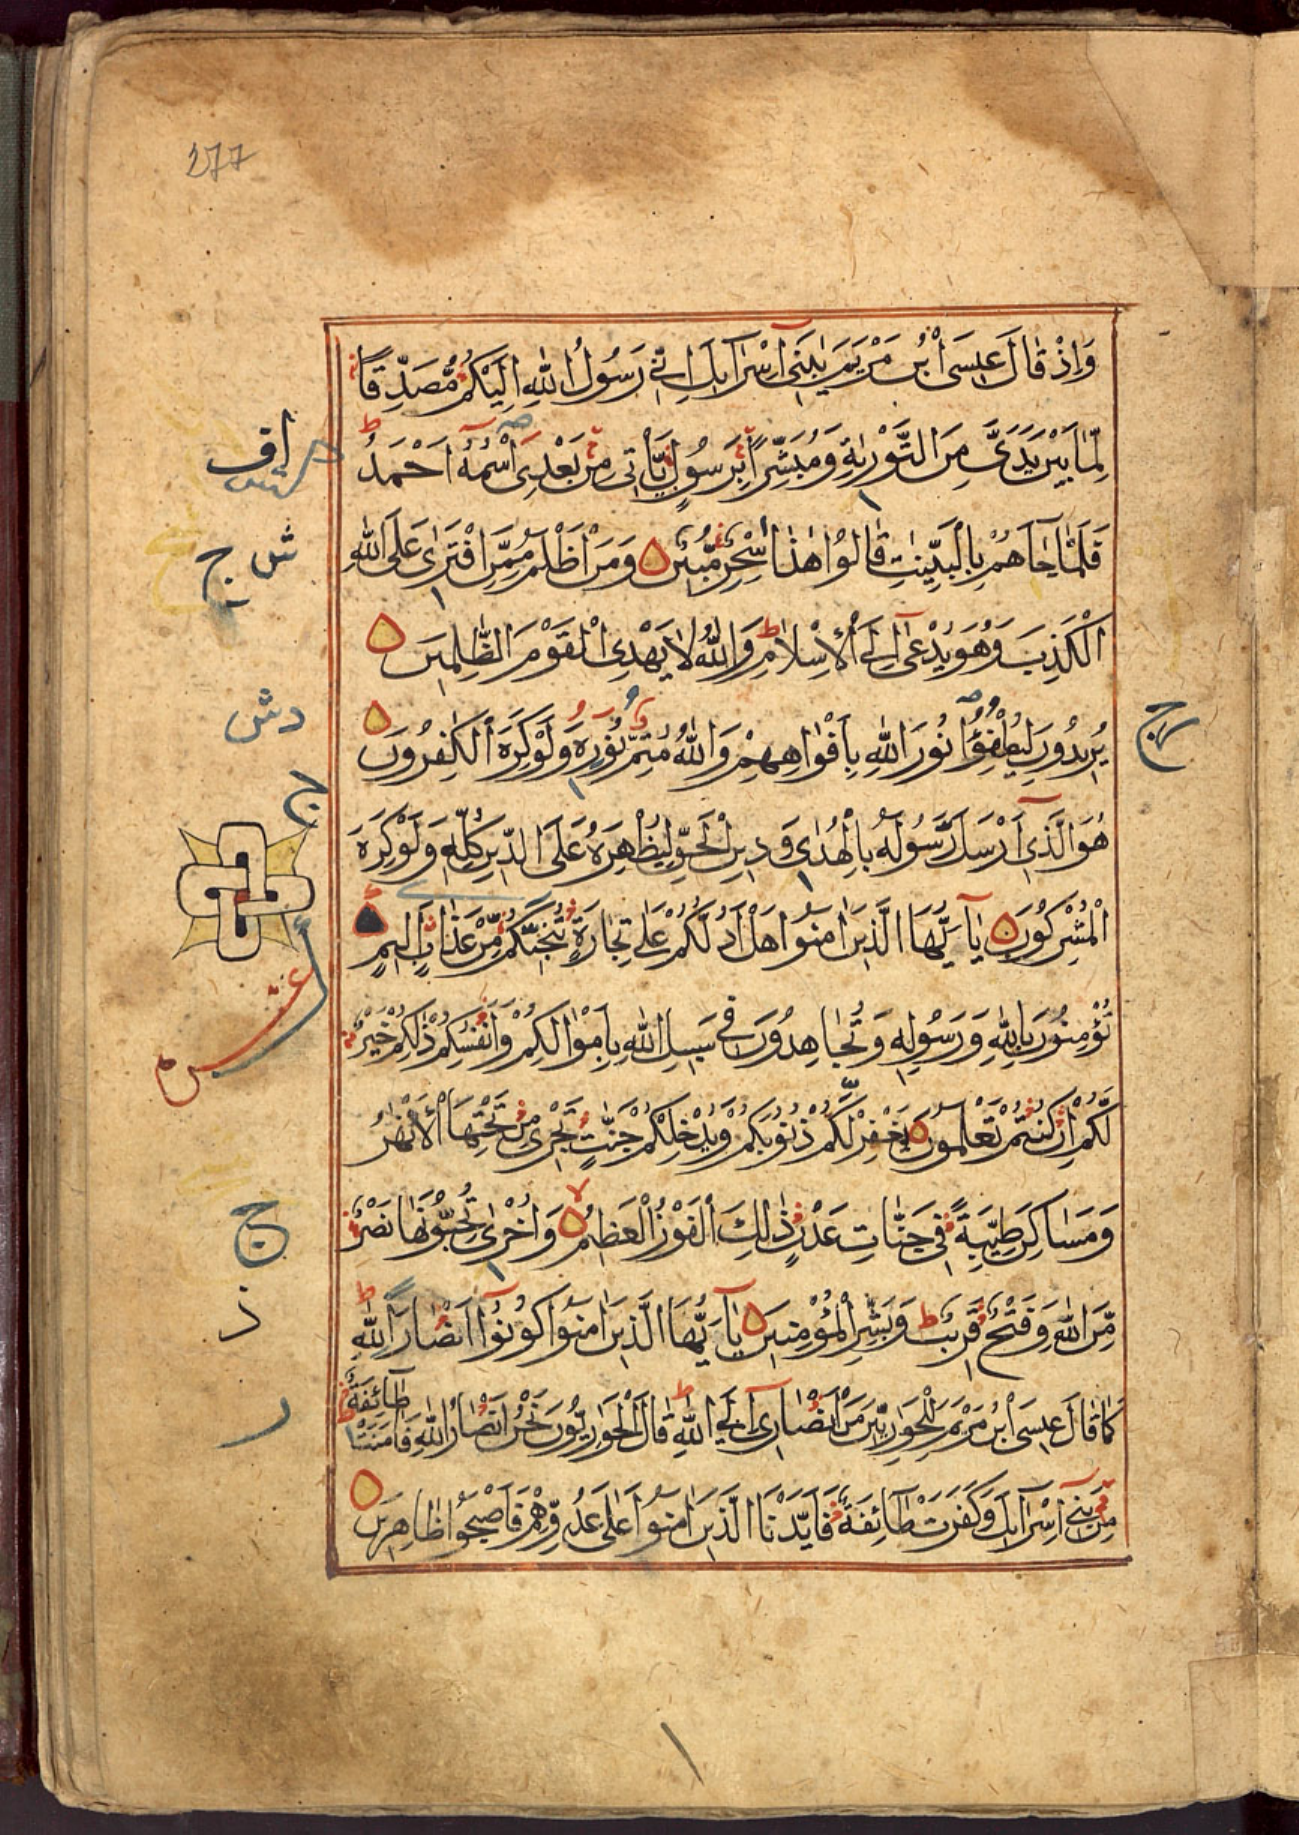 277
وَاِذْ قَالَ عِيسَى ابْنُ مَرْيَمَ يٰبَنِى اِسْرَآئِلَ اِنِّى رَسُولُ اللّٰهِ اِلَيْكُمْ مُصَدِّقًا
لِمَا بَيْنَ يَدَىَّ مِنَ التَّوْرٰيةِ وَمُبَشِّرًا بِرَسُولٍ يَأْتِى مِنْ بَعْدِى اسْمُهُ اَحْمَدُ
فَلَمَّا جَآءَهُمْ بِالْبَيِّنٰتِ قَالُوا هٰذَا سِحْرٌ مُبِينٌ وَمَنْ اَظْلَمُ مِمَّنِ افْتَرٰى عَلَى اللّٰهِ
الْكَذِبَ وَهُوَ يُدْعٰى اِلَى الْاِسْلَامِ وَاللّٰهُ لَا يَهْدِى الْقَوْمَ الظّٰلِمِينَ
يُرِيدُونَ لِيُطْفِؤُا نُورَ اللّٰهِ بِاَفْوَاهِهِمْ وَاللّٰهُ مُتِمُّ نُورِهِ وَلَوْ كَرِهَ الْكٰفِرُونَ
هُوَ الَّذِى اَرْسَلَ رَسُولَهُ بِالْهُدٰى وَدِينِ الْحَقِّ لِيُظْهِرَهُ عَلَى الدِّينِ كُلِّهِ وَلَوْ كَرِهَ
الْمُشْرِكُونَ يَآ اَيُّهَا الَّذِينَ اٰمَنُوا هَلْ اَدُلُّكُمْ عَلٰى تِجَارَةٍ تُنْجِيْكُمْ مِنْ عَذَابٍ اَلِيمٍ
تُؤْمِنُونَ بِاللّٰهِ وَرَسُولِهِ وَتُجَاهِدُونَ فِى سَبِيلِ اللّٰهِ بِاَمْوَالِكُمْ وَاَنْفُسِكُمْ ذٰلِكُمْ خَيْرٌ
لَكُمْ اِنْ كُنْتُمْ تَعْلَمُونَ يَغْفِرْ لَكُمْ ذُنُوبَكُمْ وَيُدْخِلْكُمْ جَنّٰتٍ تَجْرِى مِنْ تَحْتِهَا الْاَنْهٰرُ
وَمَسَاكِنَ طَيِّبَةً فِى جَنَّاتِ عَدْنٍ ذٰلِكَ الْفَوْزُ الْعَظِيمُ وَاُخْرٰى تُحِبُّونَهَا نَصْرٌ
مِنَ اللّٰهِ وَفَتْحٌ قَرِيبٌ وَبَشِّرِ الْمُؤْمِنِينَ يَآ اَيُّهَا الَّذِينَ اٰمَنُوا كُونُوآ اَنْصَارَ اللّٰهِ
كَمَا قَالَ عِيسَى ابْنُ مَرْيَمَ لِلْحَوَارِيّٖنَ مَنْ اَنْصَارِى اِلَى اللّٰهِ قَالَ الْحَوَارِيُّونَ نَحْنُ اَنْصَارُ اللّٰهِ فَاٰمَنَتْ طَآئِفَةٌ
مِنْ بَنِى اِسْرَآئِلَ وَكَفَرَتْ طَآئِفَةٌ فَاَيَّدْنَا الَّذِينَ اٰمَنُوا عَلٰى عَدُوِّهِمْ فَاَصْبَحُوا ظَاهِرِينَ